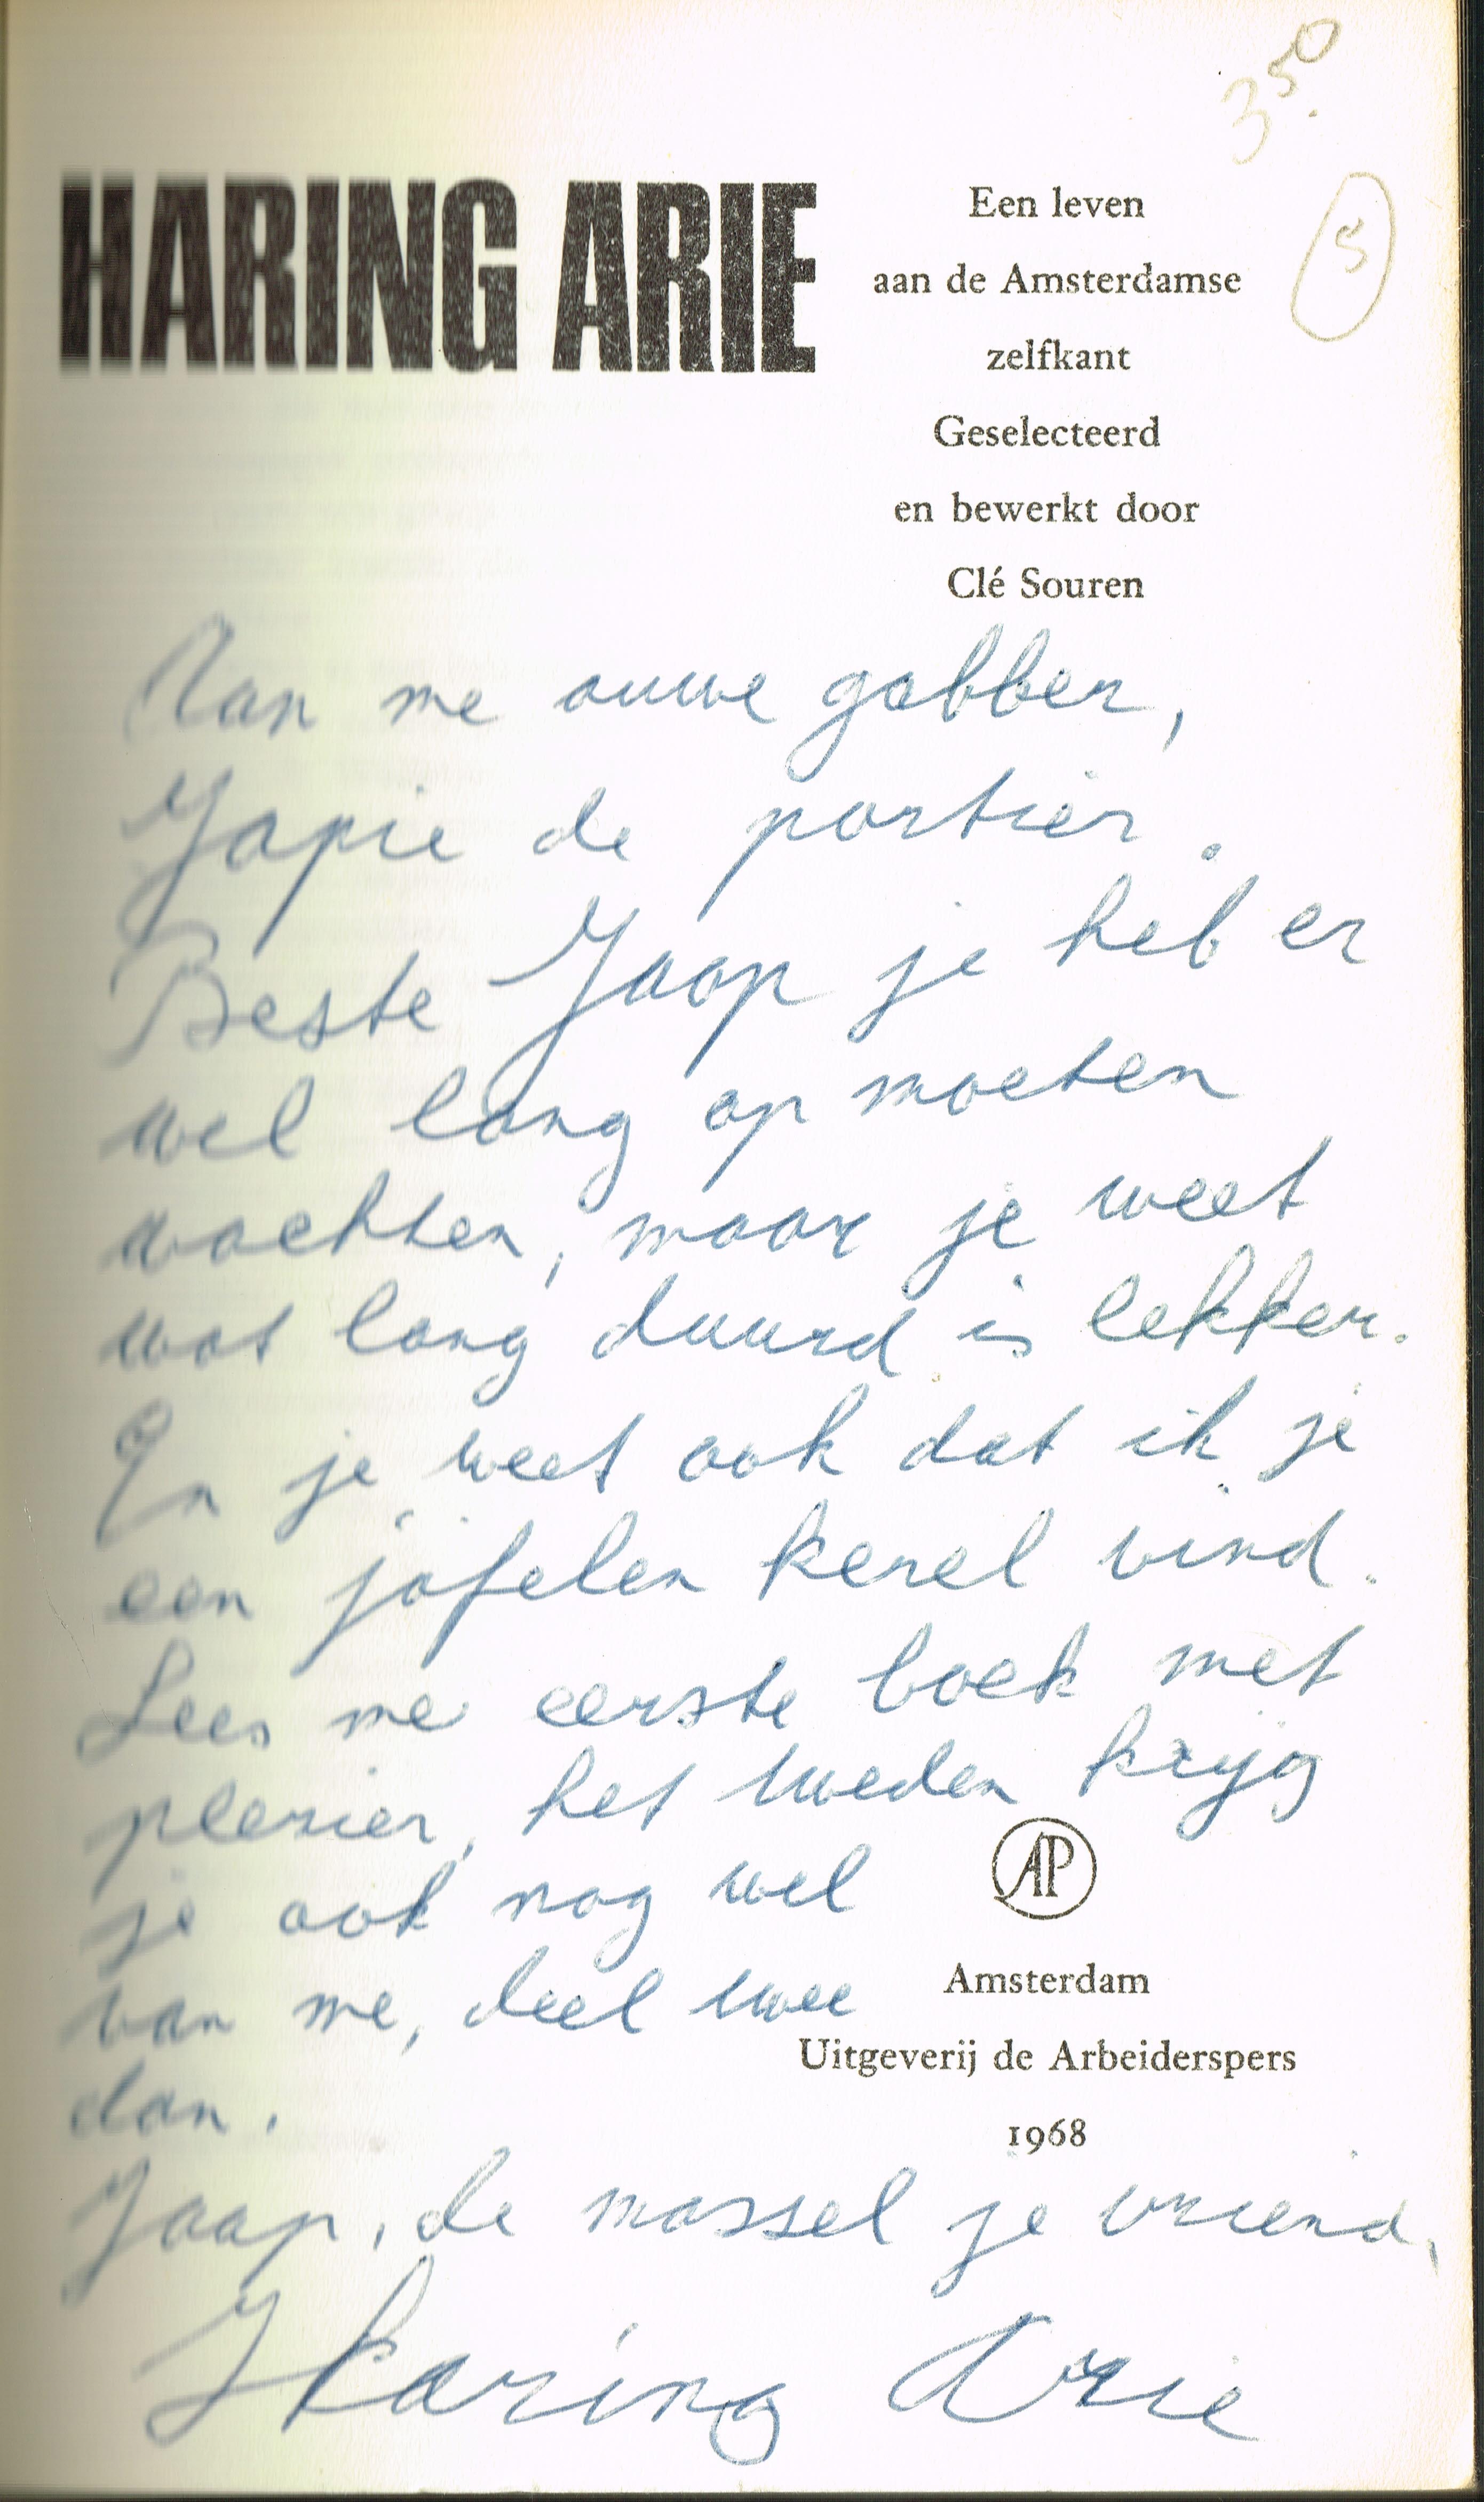 3.50
HARING ARIE
Een leven
aan de Amsterdamse
zelfkant
Geselecteerd
en bewerkt door
Clé Souren
5
Aan me ouwe gabber,
Japie de portier.
Beste Jaap je heb er
wel lang op moeten
wachten, maar je weet
wat lang duurd is lekker.
En je weet ook dat ik je
een jofelen kerel vind.
Lees me eerste boek met
plezier, het tweden krijg
je ook nog wel
van me, deel twee
dan.
AP
Amsterdam
Uitgeverij de Arbeiderspers
1968
Jaap, de massel je vriend,
Haring Arie